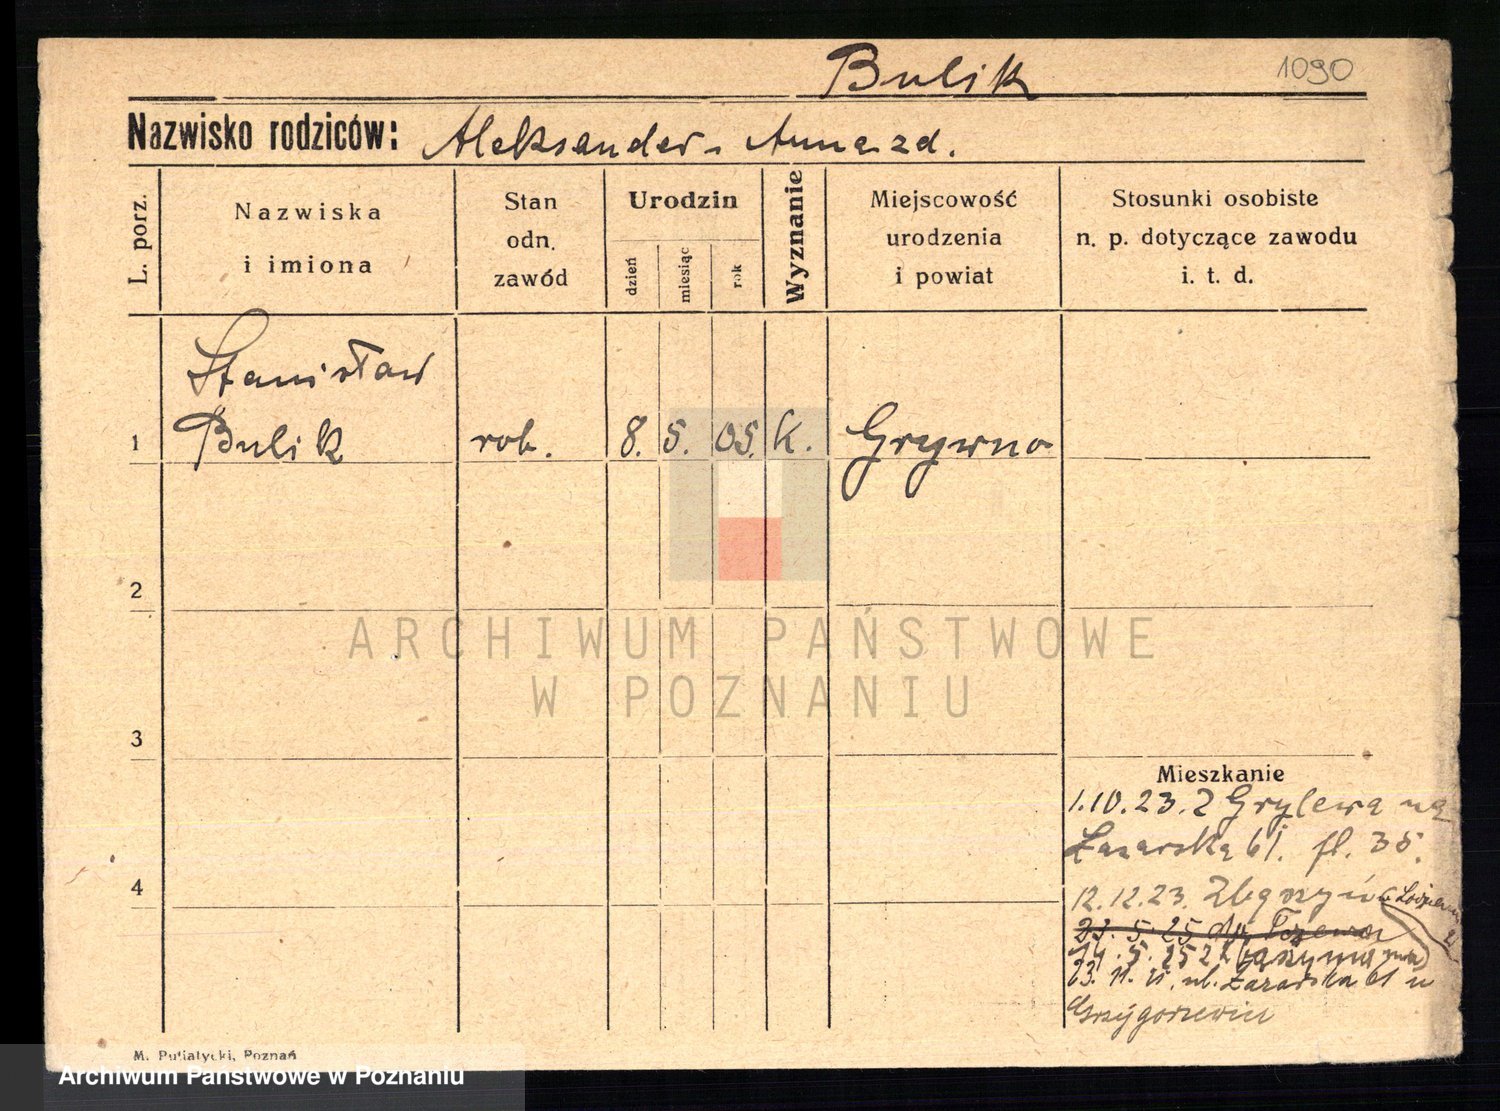 Bulik
1090
Nazwisko rodziców: Aleksander - Anna zd.
L. porz.
Nazwiska
i imiona
Stan
odn.
zawód
Urodzin
dzień
miesiąc
rok
Wyznanie
Miejscowość
urodzenia
i powiat
Stosunki osobiste
n. p. dotyczące zawodu
i. t. d.
Stanisław
1 Bulik rob. 8. 5. 05. k. Grywno
2
ARCHIWUM PAŃSTWOWE
W POZNANIU
3
Mieszkanie
1.10.23. Z
Łazarska 61. 35.
4
12.12.23. Zbąszyń
23.5.25
5.25
23.11. ul. Łazarska 61 u
M. Putiatycki, Poznań
Archiwum Państwowe w Poznaniu